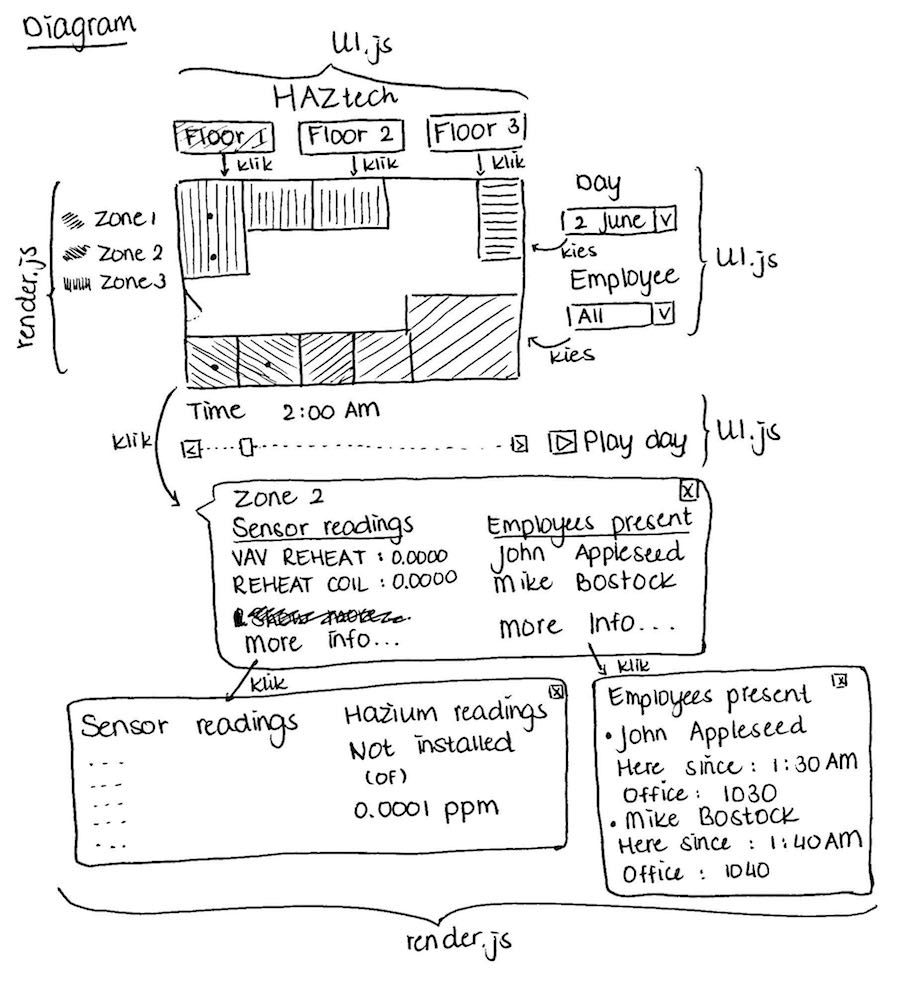 Diagram
UI.js
HAZtech
Floor 1 Floor 2 Floor 3
klik klik klik
render.js
Zone 1
Zone 2
Zone 3
Day
2 June V
kies
Employee
All V
kies
UI.js
Time 2:00 AM
klik
< > ▷ Play day
UI.js
Zone 2 X
Sensor readings Employees present
VAV REHEAT : 0.0000 John Appleseed
REHEAT COIL : 0.0000 Mike BOSTOCK
more info... more Info...
klik klik
Sensor readings Hazium readings X
Not installed
(OF)
0.0001 ppm
Employees present X
• John Appleseed
Here since : 1:30 AM
Office : 1030
• Mike BOSTOCK
Here since : 1:40 AM
Office : 1040
render.js